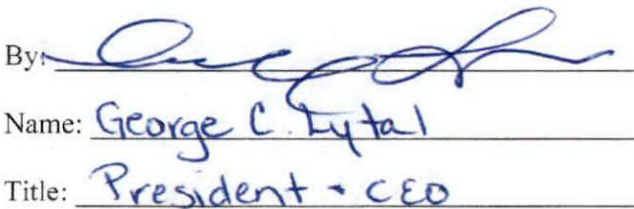 By:
Name: George C. Lytal
Title: President + CEO